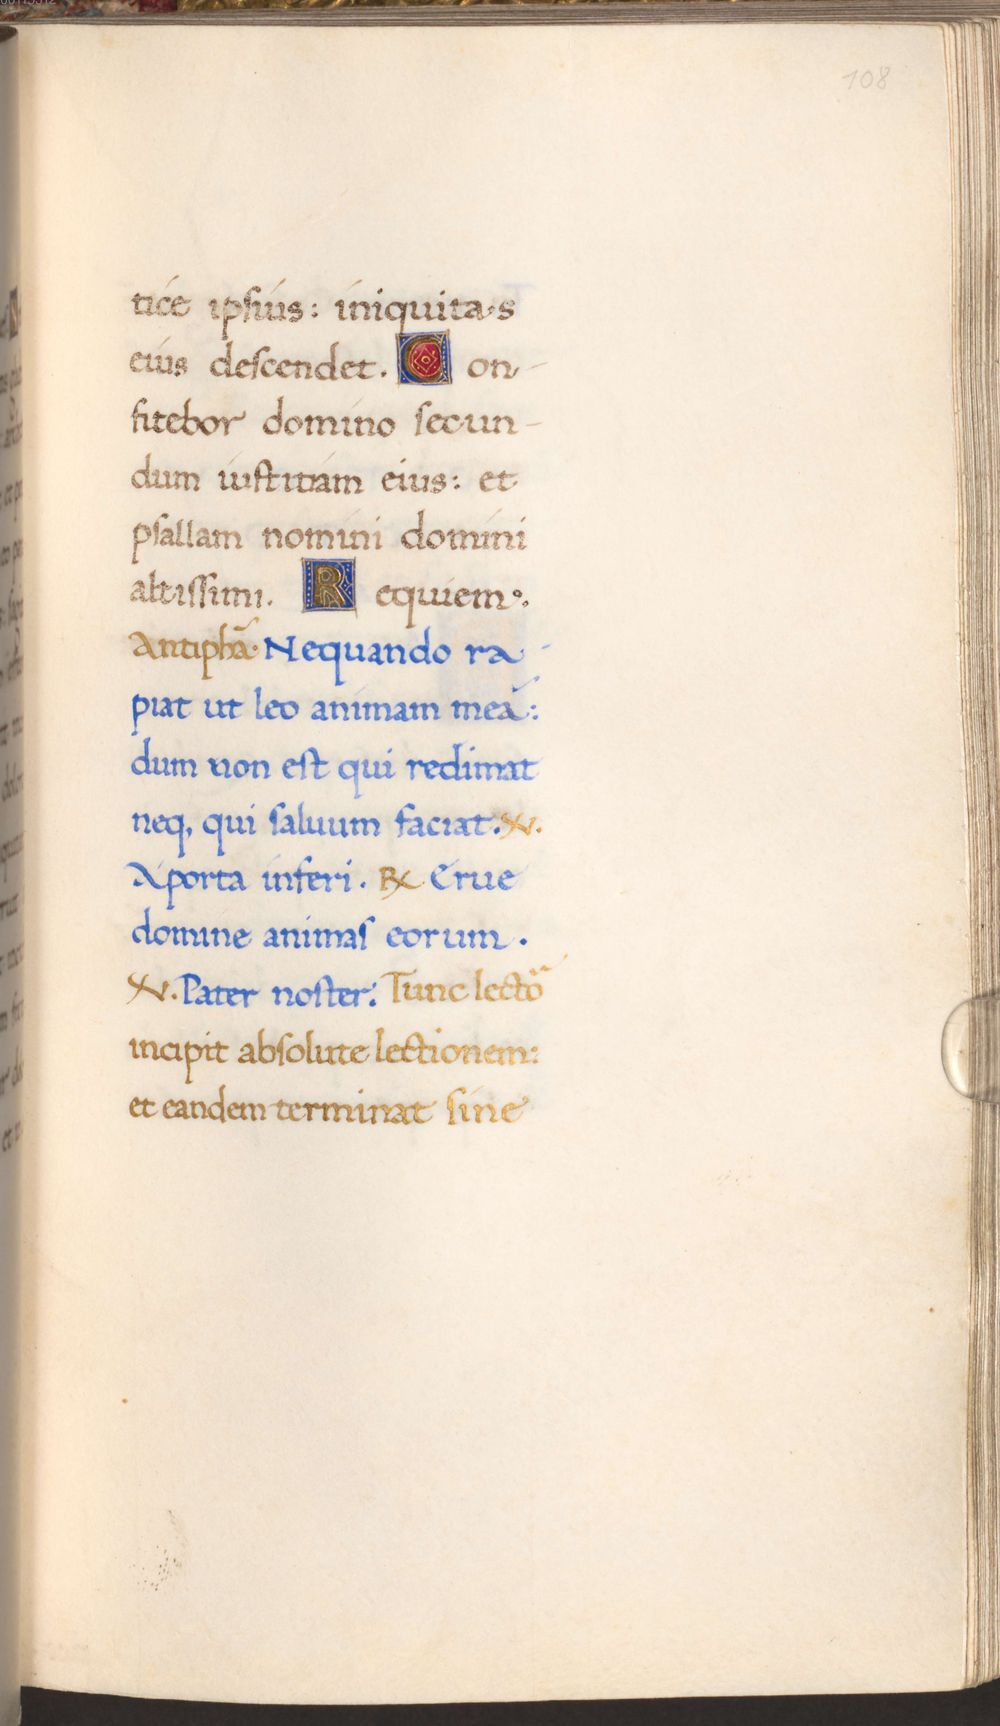 108
tice ipsius: iniquitas
eius descendet. Con-
fitebor domino secun-
dum iustitiam eius: et
psallam nomini domini
altissimi. Requiem.
Antiphã. Nequando ra-
piat ut leo animam meã:
dum non est qui redimat
neq, qui saluum faciat. ℣.
A porta inferi. ℟ Erue
domine animas eorum.
℣. Pater noster: Tunc lecto
incipit absolute lectionem:
et eandem terminat sine